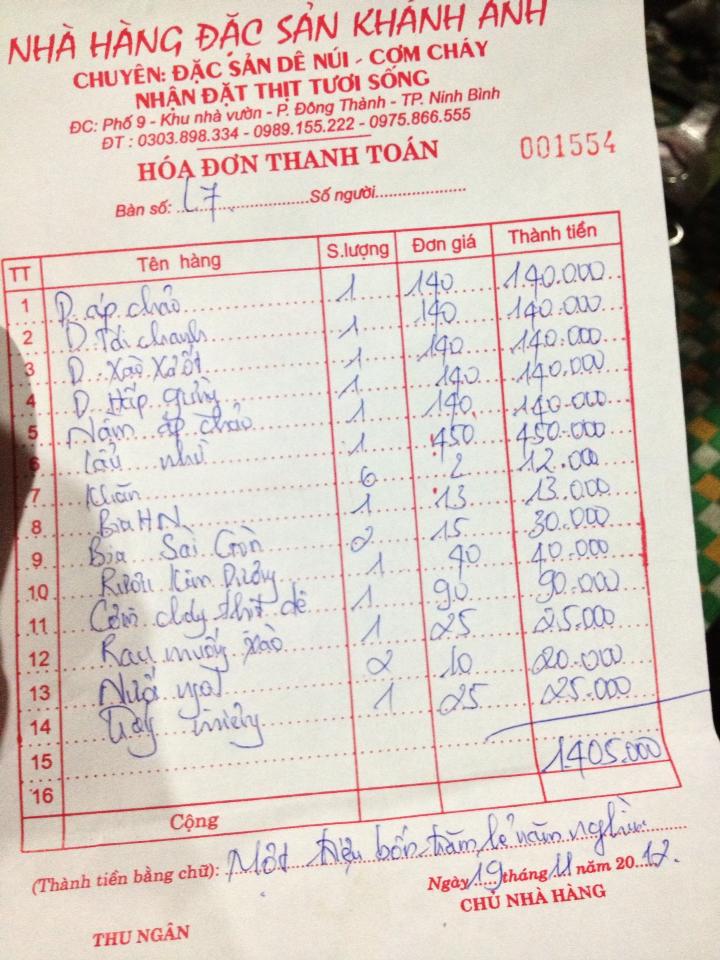 NHÀ HÀNG ĐẶC SẢN KHÁNH ÁNH
CHUYÊN: ĐẶC SẢN DÊ NÚI - CƠM CHÁY
NHẬN ĐẶT THỊT TƯƠI SỐNG
ĐC: Phố 9 - Khu nhà vườn - P. Đông Thành - TP. Ninh Bình
ĐT : 0303.898.334 - 0989.155.222 - 0975.866.555
HÓA ĐƠN THANH TOÁN 001554
Bàn số: L7 Số người
TT Tên hàng S.lượng Đơn giá Thành tiền
1 D. áp chảo 1 140 140.000
2 D. Tái chanh 1 140 140.000
3 D. Xào Xả ớt 1 140 140.000
4 D. Hấp gừng 1 140 140.000
5 Nầm áp chảo 1 140 140.000
6 Lẩu nhừ 1 450 450.000
7 Khăn 6 2 12.000
8 Bia HN 1 13 13.000
9 Bia Sài Gòn 2 15 30.000
10 Rượu Kim Dương 1 40 40.000
11 Cơm cháy thịt dê 1 90 90.000
12 Rau muống xào 1 25 25.000
13 Nước ngọt 2 10 20.000
14 miến 1 25 25.000
15 1405.000
16
Cộng
(Thành tiền bằng chữ): Một triệu bốn trăm lẻ năm nghìn
Ngày 19 tháng 11 năm 2012.
CHỦ NHÀ HÀNG
THU NGÂN